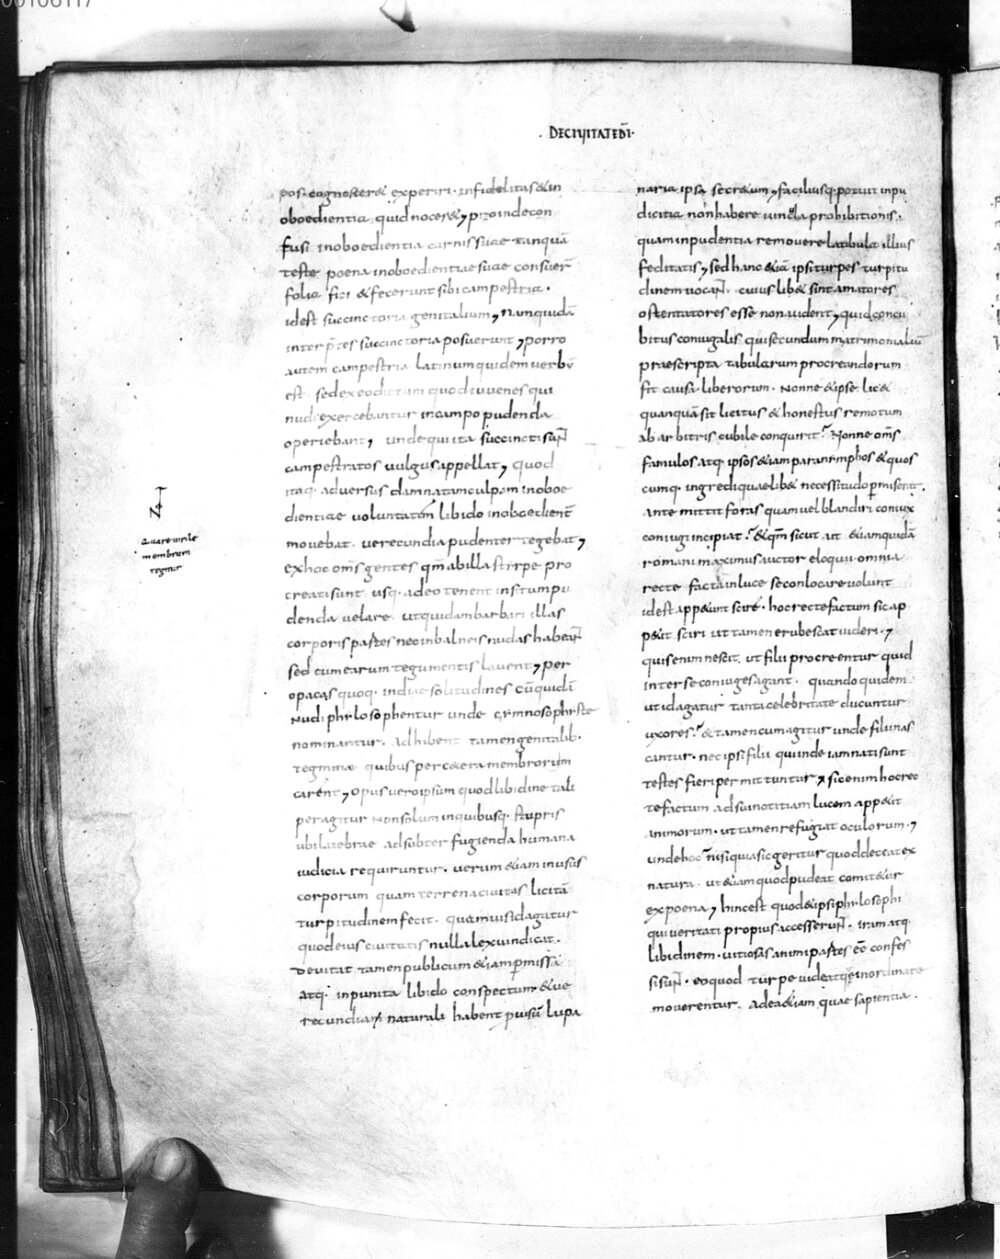 00106117
· DECIVITATEDĪ·
pos· cognoscere& experiri· infidelitas&in
oboedientia quid noceret, proindecon
fusi inoboedientia carnissuae tanquā
teste poena inoboedientiaesuae consuer̄
folia fici & fecerunt sibi campestria·
idest succinctoria genitalium, Nam quidā
interp̄tes succinctoria posuerunt, porro
autem campestria latinum quidem verbū
est sed ex eo dictam quod iuvenes qui
nudi exercebantur in campo pudenda
operiebant, unde qui ita succincti sun̄
campestratos vulgus appellat, quod
itaq· adversus damnatam culpam inoboe
dientiae voluntatem libido inoboedient̄
movebat· verecundia pudenter tegebat,
ex hoc om̄s gentes qm̄ ab illa stirpe pro
creati sunt usq· adeo tenent insitum pu
denda velare ut quidam barbari illas
corporis partes nec in balneis nudas habean̄
sed cum earum tegumentis lavent, per
opacas quoq· indiae solitudines cū quidā
Nudi philosophentur unde gimnosophiste
nominantur· adhibent tamen genitalib·
tegmina quibus per cetera membrorum
carent, Opus vero ipsum quod libidine tali
peragitur Non solum in quibusq· stupris
ubi latebrae ad subterfugienda humana
iudicia requiruntur· verum &iam in usus
corporum quam terrena civitas licitā
turpitudinem fecit· quamvis id agatur
quod eius civitatis nulla lex vindicat·
Devitat tamen publicum &iam permissa
atq· inpunita libido conspectum & ve
recundiam naturali habent provisū lupa
naria ipsa secretum, faciliusq· potuit inpu
dicitia non habere vincla prohibitionis·
quam inpudentia removere latibula illius
feditatis, sed hanc &iā ipsi turpes turpitu
dinem vocan̄· cuius lib& sint amatores
ostentatores esse non audent, quid concu
bitus coniugalis qui secundum matrimonialiū
praescripta tabularum procreandorum
fit causa liberorum· Nonne & ipse lic&
quanquā sit licitus & honestus remotum
ab arbitris cubile conquirit? Nonne om̄s
famulos atq· ipsos &iam paranimphos & quos
cumq· ingredi quaelib& necessitudo permiserat·
ante mittit foras quam vel blandiri coniux
coniugi incipiat? & qm̄ sicut ait &iam quidā
romani maximus auctor eloquii omnia
recte facta in luce se conlocare volunt
idest appetunt sciri· hoc recte factum sic ap
petit sciri ut tamen erubescat videri,
quis enim nescit ut filii procreentur quid
inter se coniuges agant· quandoquidem
ut id agatur tanta celebritate ducuntur
uxores? & tamen cum agitur unde filii nas
cantur· nec ipsi filii qui inde iam nati sunt
testes fieri permittuntur, sic enim hoc rec
te factum ad sui notitiam lucem appetit
animorum· ut tamen refugiat oculorum,
unde hoc nisi quia sic geritur quod deceat ex
natura· ut &iam quod pudeat comitetur
ex poena, hinc est quod & ipsi philosophi
qui veritati propius accesserun̄· iram atq·
libidinem· vitiosas animi partes eē confes
si sun̄· eo quod turpe videatq· inordinate
moverentur· ad ea &iam quae sapientia·
Quare virile
membrum
tegitur